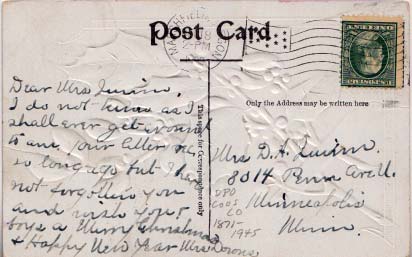 Post Card
MARSHFIELD
2-PM
Dear Mrs Quinn,
I do not know as I
shall ever get around
to ans. your letter rec.
so long ago but I have
not forgotten you
and wish you &
boys a Merry Christmas
+ Happy New Year Mrs
This space for Correspondence only
Only the Address may be written here
Mrs D. A. Quinn
8014 Penn Ave N.
Minneapolis
Minn.
DPO
COOS
CO
1871-
1945